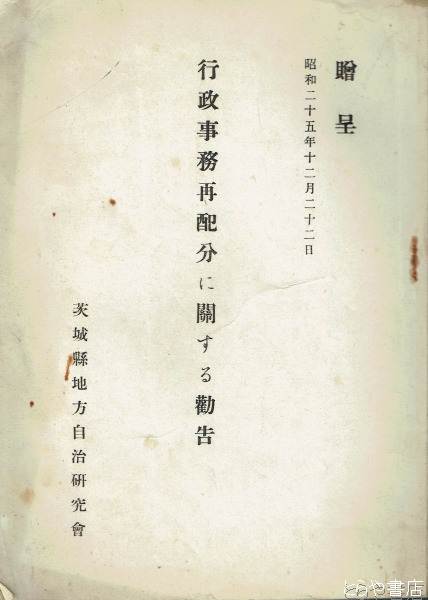 贈呈
昭和二十五年十二月二十二日
行政事務再配分に關する勸告
茨城縣地方自治研究會
とらや書店